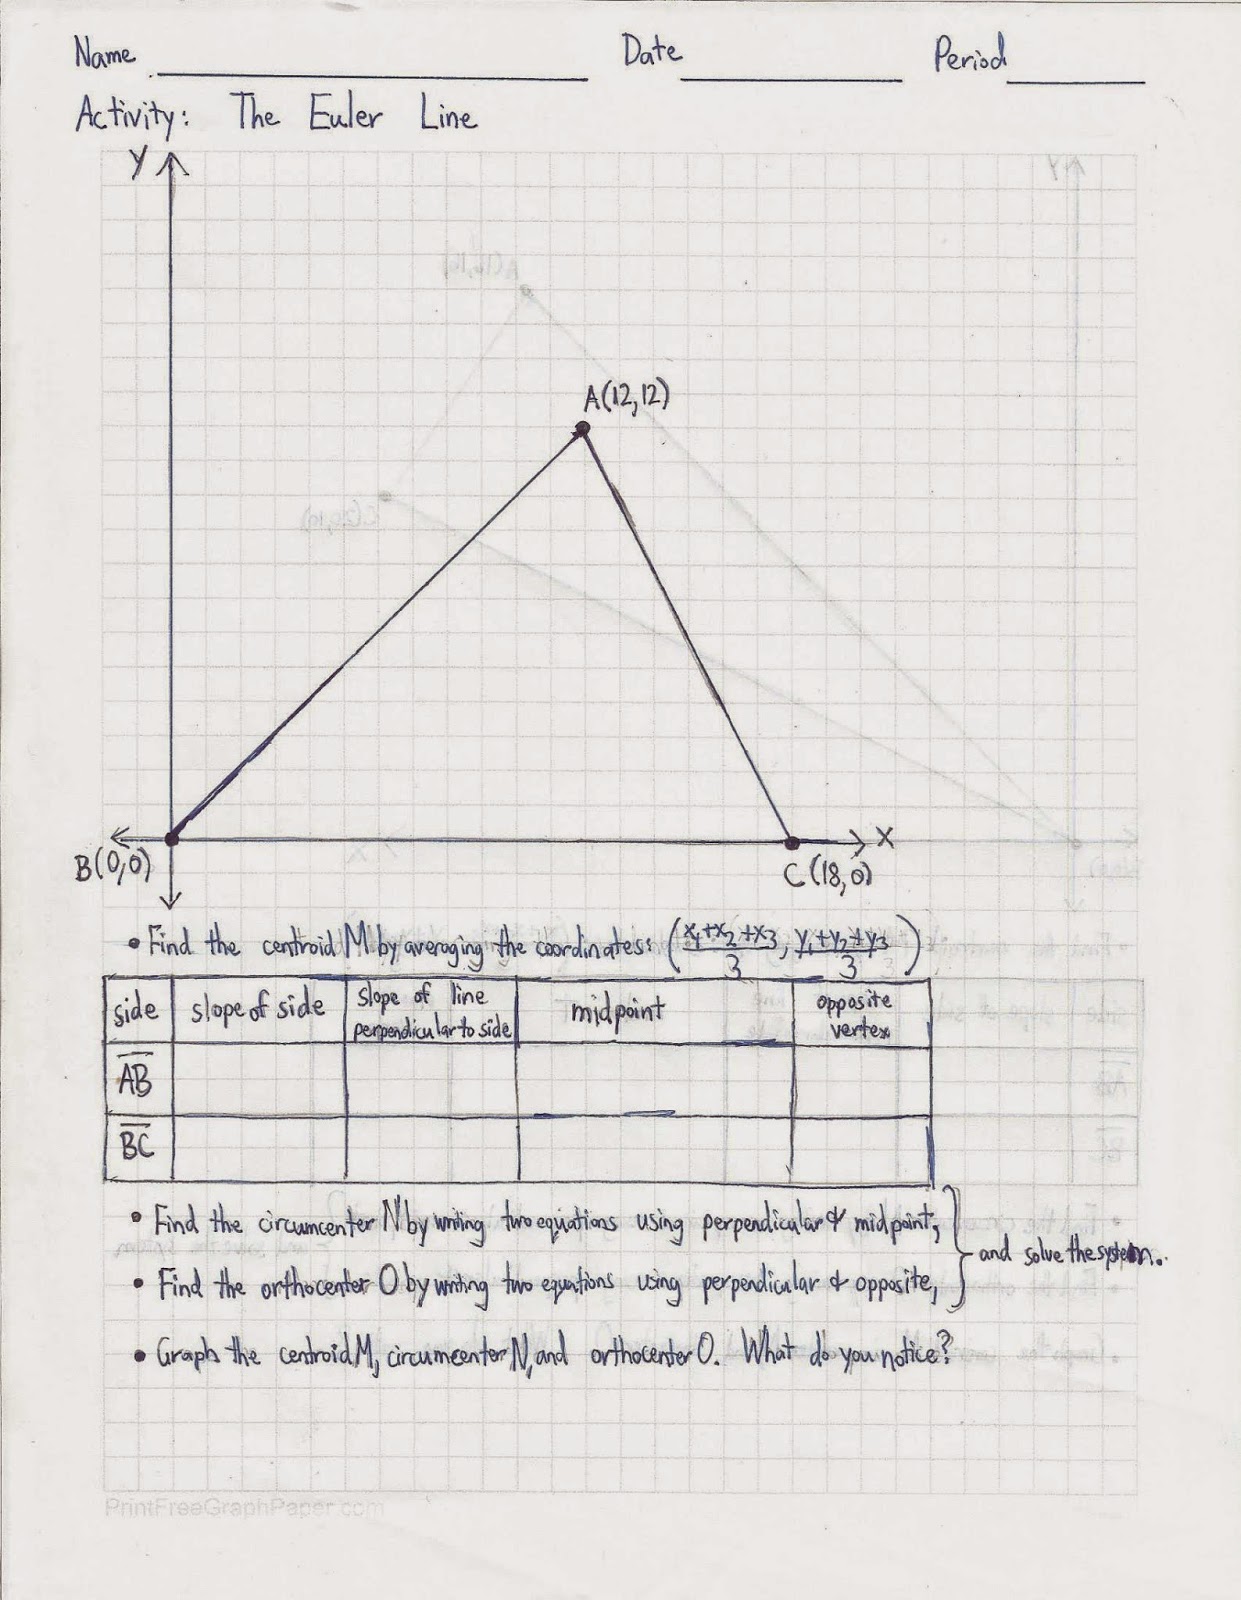 Name Date Period
Activity: The Euler Line
Y
A(12,12)
X
B(0,0)
C(18,0)
• Find the centroid M by averaging the coordinates: (x₁+x₂+x₃/3, y₁+y₂+y₃/3)
side slope of side slope of line perpendicular to side midpoint opposite vertex
AB
BC
• Find the circumcenter N by writing two equations using perpendicular & midpoint,
and solve the system.
• Find the orthocenter O by writing two equations using perpendicular & opposite,
• Graph the centroid M, circumcenter N, and orthocenter O. What do you notice?
PrintFreeGraphPaper.com